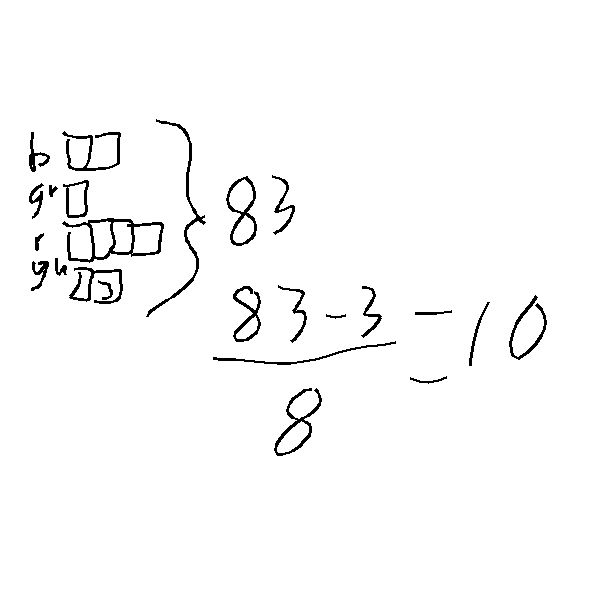 b
gr
r
ye 3
83
83-3
8
=10